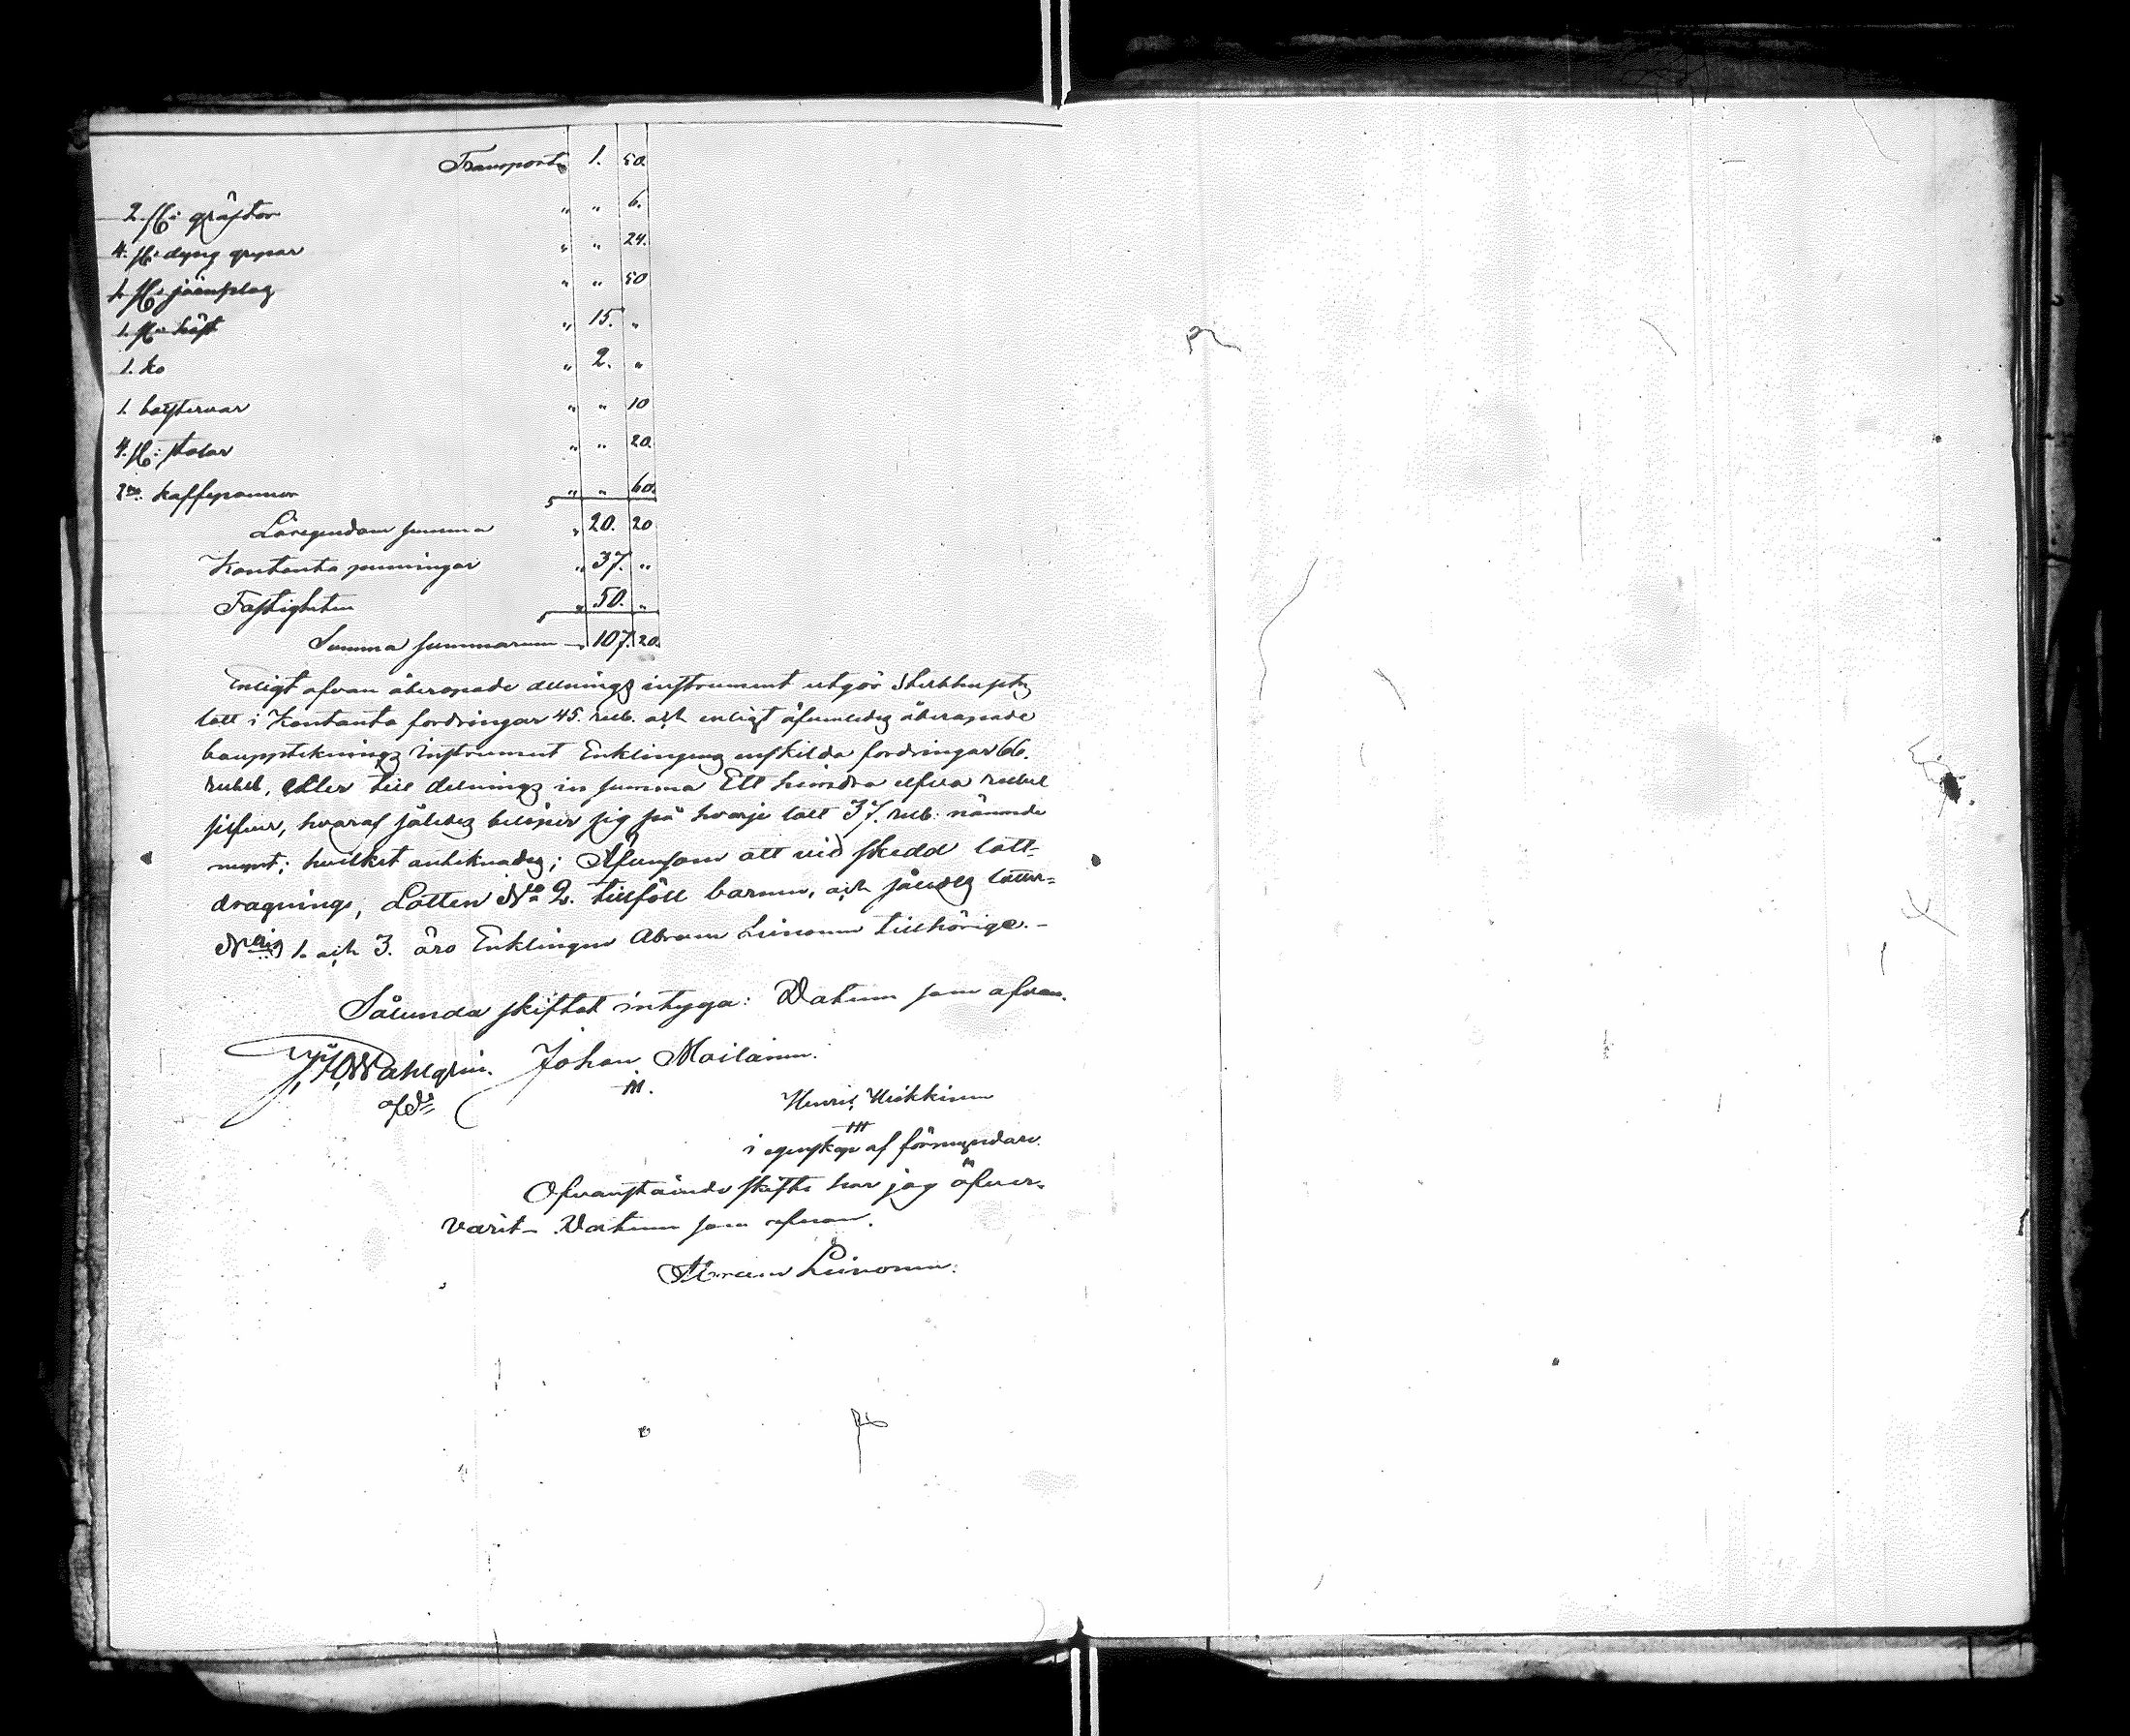 Transport 1. 50.
2. st: gräftor " " 6.
4. st: dyng grepar " " 24.
1. st: järnslag " " 50
1. st: häst " 15. "
1. ko " 2. "
1. bolstervar " " 10
4. st: stolar " " 20.
2ne kaffepannor " " 60.
Lösegendom summa " 20. 20
Kontanta penningar " 37. "
Fastigheten " 50. "
Summa summarum " 107. 20.
Enligt ofvan åberopade delnings instrument utgör Sterbhusets
lott i Kontanta fordringar 45. rub. och enligt åberopade
bouppteknings instrument Enklingens enskilda fordringar 66.
rubel, eller till delnings in summa Ett hundra elfva rubel
silfver, hvaraf således belöper sig på hvarje lott 37. rub. nämnde
mynt; hvilket anteknades; Äfvensom att vid skedd lott-
dragning, Lotten No 2. tillföll barnen, och således lotter-
Nris 1. och 3. äro Enklingen Abram Leinonen tillhörige.-
Sålunda skiftat intyga: Datum som ofvan.
Wahlgren. Johan Moilanen.
Henric Heikkinen
i egenskap af förmyndare.
Ofvanstående skifte har jag öfver-
varit- Datum som ofvan.
Abram Leinonen.